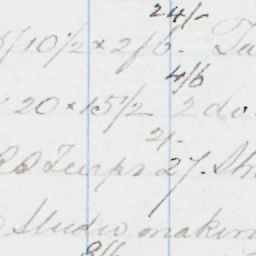 24/-
10 1/2 x 2 f 6. Ta
4/6
20 x 15 1/2 2 do.
2/-
Turps 27. Sh
Studio makin
8/6